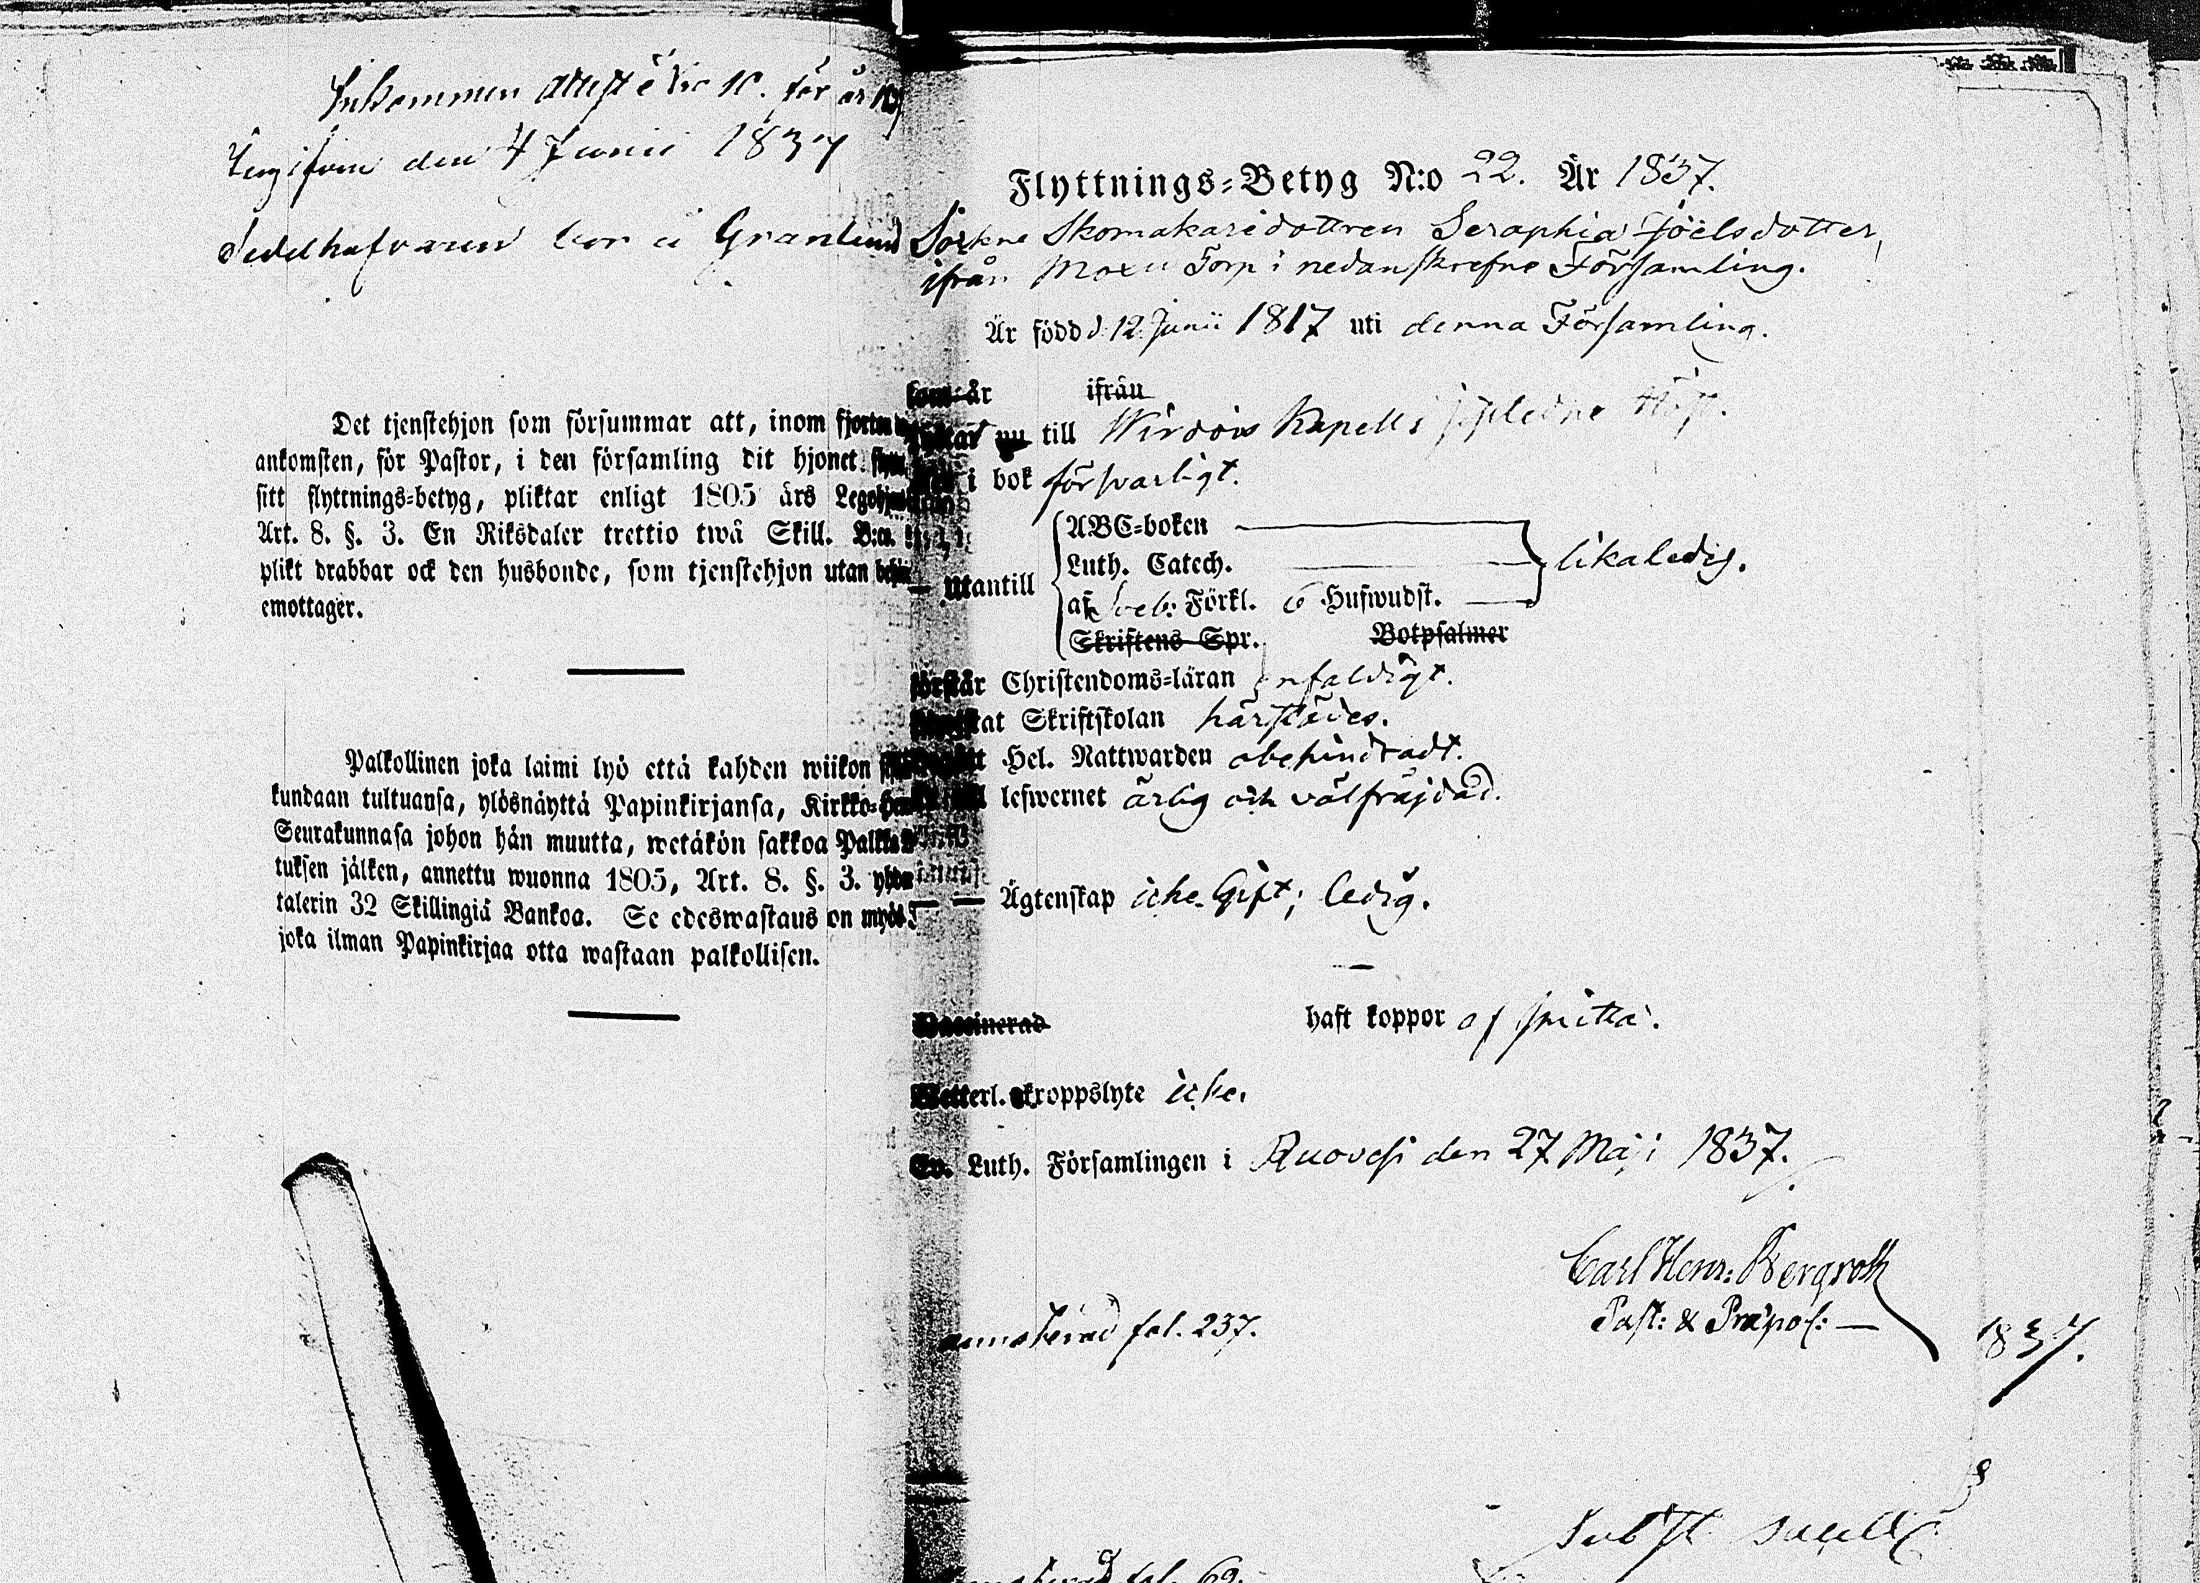 Inkommen attest N:o 10. för år
ingifven den 4 Junii 1837
Sedelhafvaren bor i Granlund
Det tjenstehjon som försummar att, inom fjorton
ankomsten, för Pastor, i den församling dit hjonet
sitt flyttnings=betyg, pliktar enligt 1805 års Legohjons
Art. 8. §. 3. En Riksdaler trettio twå Skill. B:co.
plikt drabbar ock den husbonde, som tjenstehjon utan
emottager.
Palkollinen joka laimi lyö että kahden wiikon
kundaan tultuansa, ylösnäyttä Papinkirjansa, Kirkko=
Seurakunnasa johon hän muutta, wetäkön sakkoa
tuksen jälken, annettu wuonna 1805, Art. 8. §. 3.
talerin 32 Skillingiä Bankoa. Se edeswastaus on myös
joka ilman Papinkirjaa otta wastaan palkollisen.
Flyttnings=Betyg N:o 22. År 1837.
Sockne Skomakaredottren Seraphia Joëlsdotter,
ifrån Moxu Torp i nedanskrefne Församling.
Är född d. 12. Junii 1817 uti denna Församling.
som år ifrån
nu till Wirdois Kapell
i bok försvarligt.
ABC=boken
Luth. Catech.
utantill likaledig.
af Sveb: Förkl. 6 Hufwudst.
Skriftens Spr. Botpsalmer
förstår Christendoms=läran enfaldigt.
Skriftskolan härstädes.
Hel. Nattwarden obehindradt.
lefwernet ärlig och välfräjdad.
Ägtenskap icke Gift; ledig.
Vaccinerad haft koppor af smitta.
Wetterl. kroppslyte icke.
Ev. Luth. Församlingen i Ruovesi den 27 Maji 1837.
Carl Henr: Bergroth
Past: & Præpos:
annoterad fol. 237.
1837.
fol. 69.